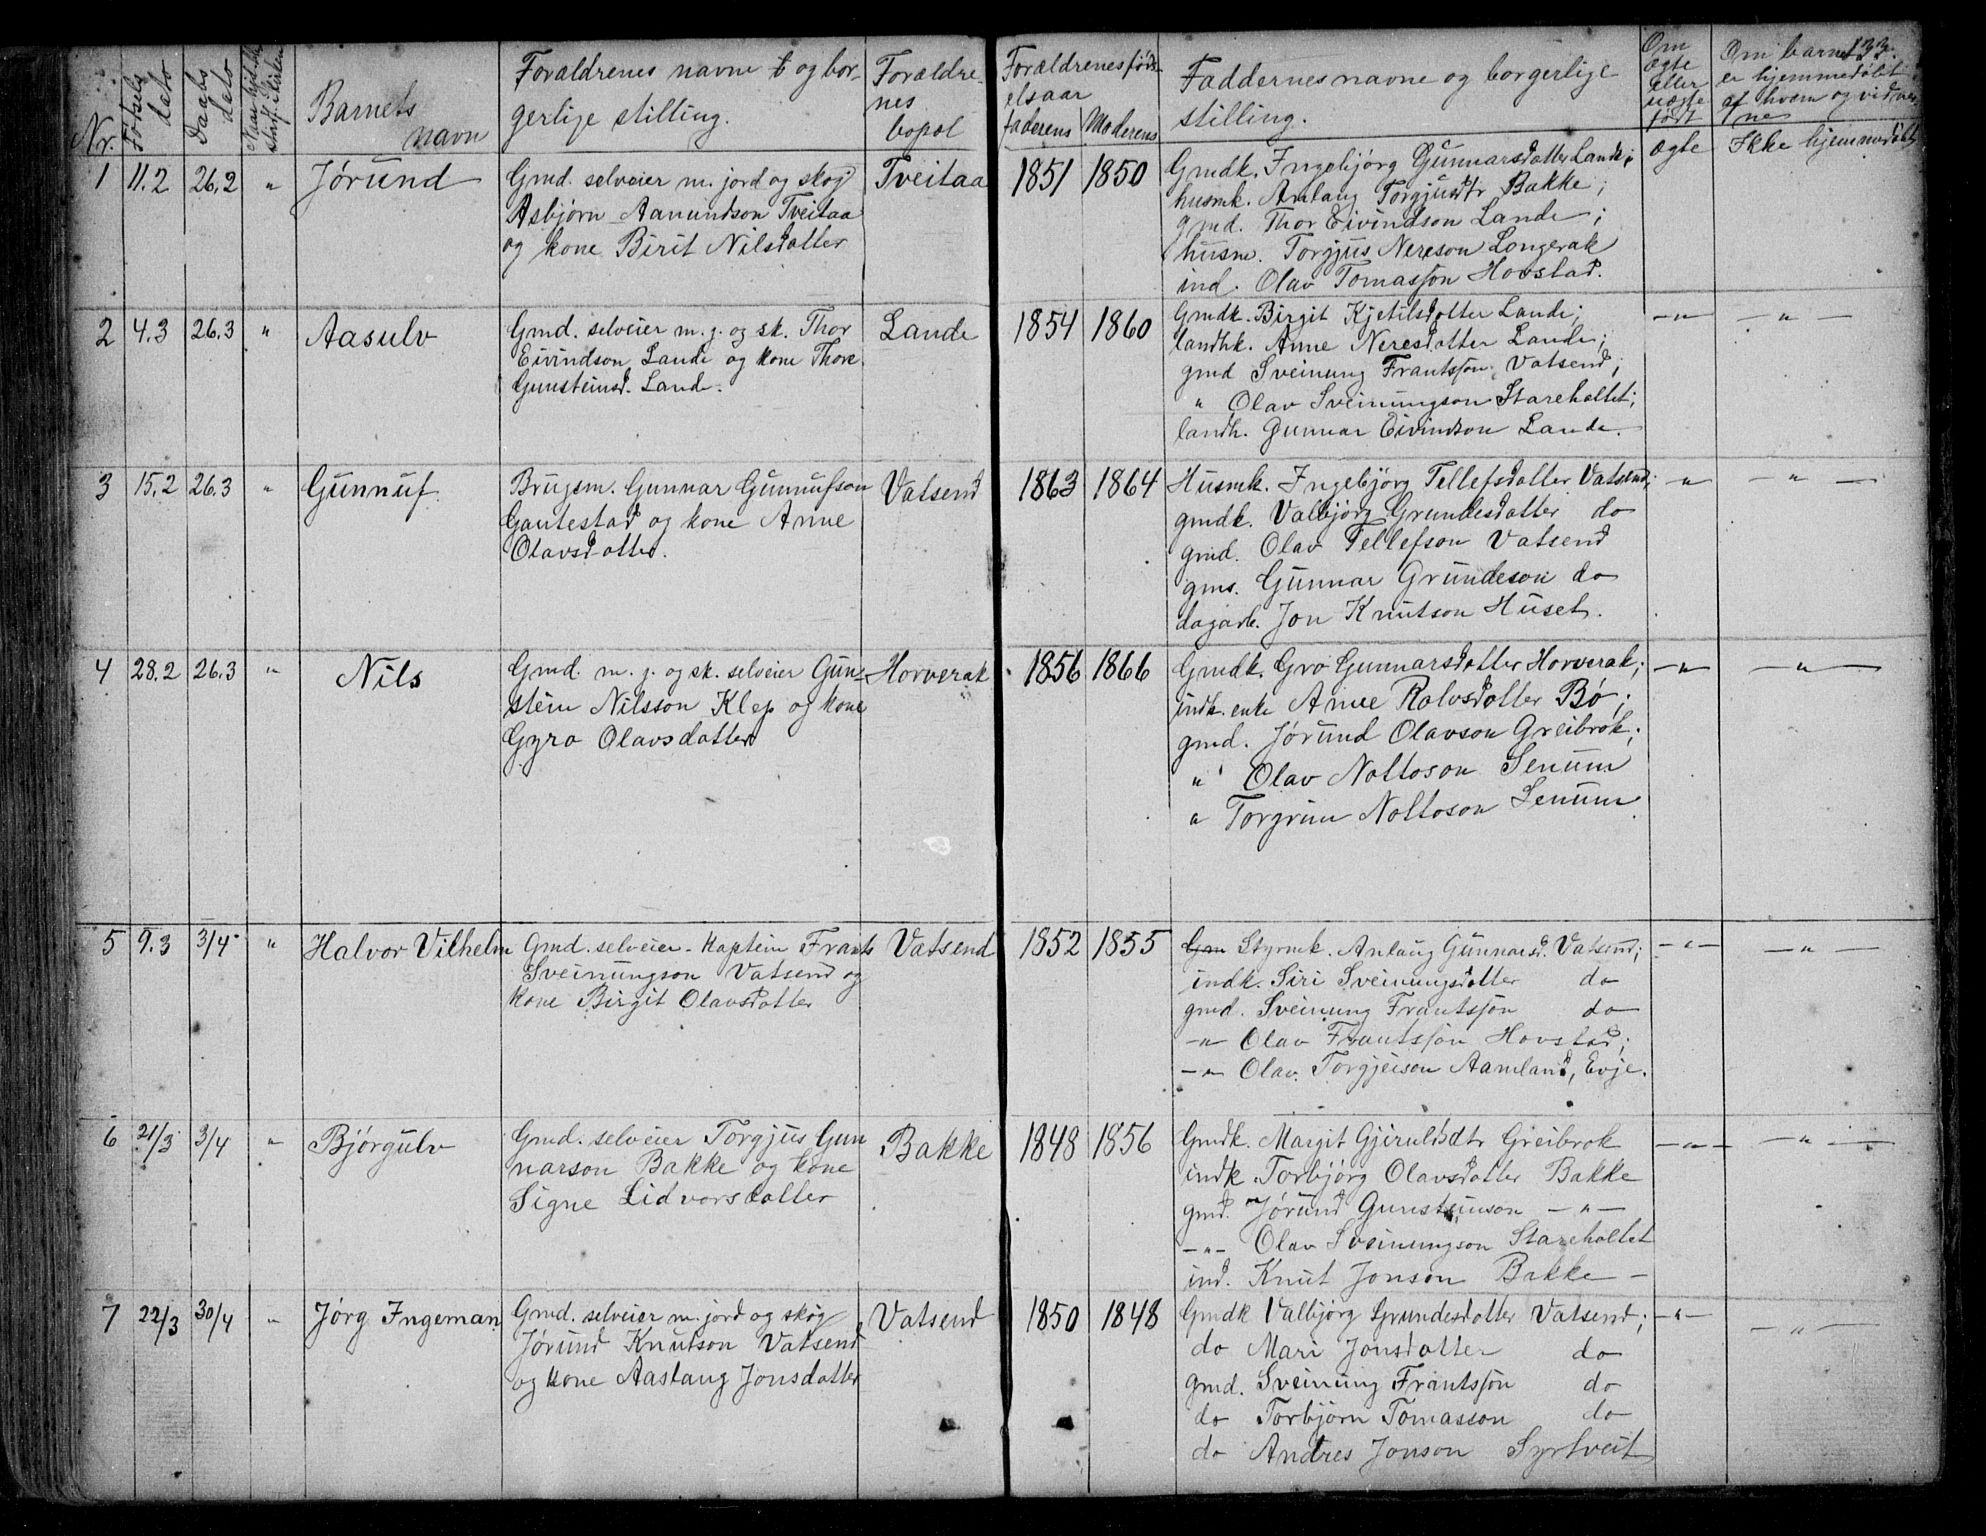 133.
Nr.
Fötsels dato
Daabs dato
Barnets navn
Foraldrenes navne og bor-
gerlige stilling.
Foraldre-
nes
bopæl
Foraldrenes föds-
elsaar
faderens Moderens
Faddernes navne og borgerlige
stilling.
Om
ægte
eller
uægte
født
Om barnet
er hjemmedöbt
af hvem og vidner-
ne
1 11.2 26.2 " Jørund
Gmd. selveier m. jord og skog
Asbjørn Aanundson Tveitaa
og kone Birit Nilsdatter
Tveitaa
1851 1850
Gmdk. Ingebjörg Gunnarsdatter Lande;
husmk. Anlaug Torgjusdtr Bakke;
gmd. Thor Eivindson Lande;
husm. Torgjus Nereson Longerak
ind. Olav Tomassøn Hovstad.
ægte
Ikke hjemmedöbt
2 4.3 26.3 " Aasulv
Gmd. selveier m. j. og sk. Thor
Eivindson Lande og kone Thore
Gunsteinsd. Lande.
Lande
1854 1860
Gmdk. Birgit Kjetilsdatter Lande;
landhk. Anne Neresdatter Lande;
gmd Sveinung Frantssøn Vatsend;
" Olav Sveinungson Stareholtet;
landh. Gunnar Eivindson Lande.
-"- - " -
3 15.2 26.3 " Gunnuf.
Brugsm. Gunnar Gunnufson
Gautestad og kone Anne
Olavsdatter.
Vatsend
1863 1864
Husmk. Ingebjörg Tellefsdatter Vatsend;
gmdk. Valbjörg Grundesdatter do
gmd. Olav Tellefson Vatsend
gms. Gunnar Grundeson do
dagarb. Jon Knutson Huset.
-"- - " -
4 28.2 26.3 " Nils
Gmd. m. j. og sk. selveier Gun-
stein Nilsson Klep og kone
Gyro Olavsdatter
Horverak
1856 1866
Gmdk. Gro Gunnarsdatter Horverak;
indk. enke Anne Rolvsdatter Bö;
gmd. Jørund Olavson Greibrok;
" Olav Nottoson Senum
" Torgrim Nottoson Senum
-"- - " -
5 9.3 3/4 " Halvor Vilhelm
Gmd. selveier - Kaptein Frants
Sveinungson Vatsend og
kone Birgit Olavsdatter
Vatsend
1852 1855
Gm Styrmk. Anlaug Gunnarsd. Vatsend;
indk. Siri Sveinungsdatter do
gmd. Sveinung Frantssøn do
-"- Olav Frantssøn Hovstad;
-"- Olav Torgjeison Aamland, Evje.
-"- - " -
6 21/3 3/4 " Bjørgulv
Gmd. selveier Torgjus Gun
narson Bakke og kone
Signe Lidvorsdatter
Bakke
1848 1856
Gmdk. Margit Gjerulsdtr Greibrok
indk. Torbjörg Olavsdatter Bakke
gmd. Jørund Gunsteinson -"-
-"- Olav Sveinungson Stareholtet
ind. Knut Jonson Bakke -
-"- - " -
7 22/3 30/4 " Jörg Ingeman
Gmd. selveier m. jord og skog
Jørund Knutson Vatsend
og kone Aaslaug Jonsdatter
Vatsend
1850 1848
Gmdk Valbjörg Grundesdatter Vatsend;
do Mari Jonsdatter do
gmd. Sveinung Frantssøn do
do Torbjørn Tomasson do
do Andres Jonson Syrtveit
-"- - " -